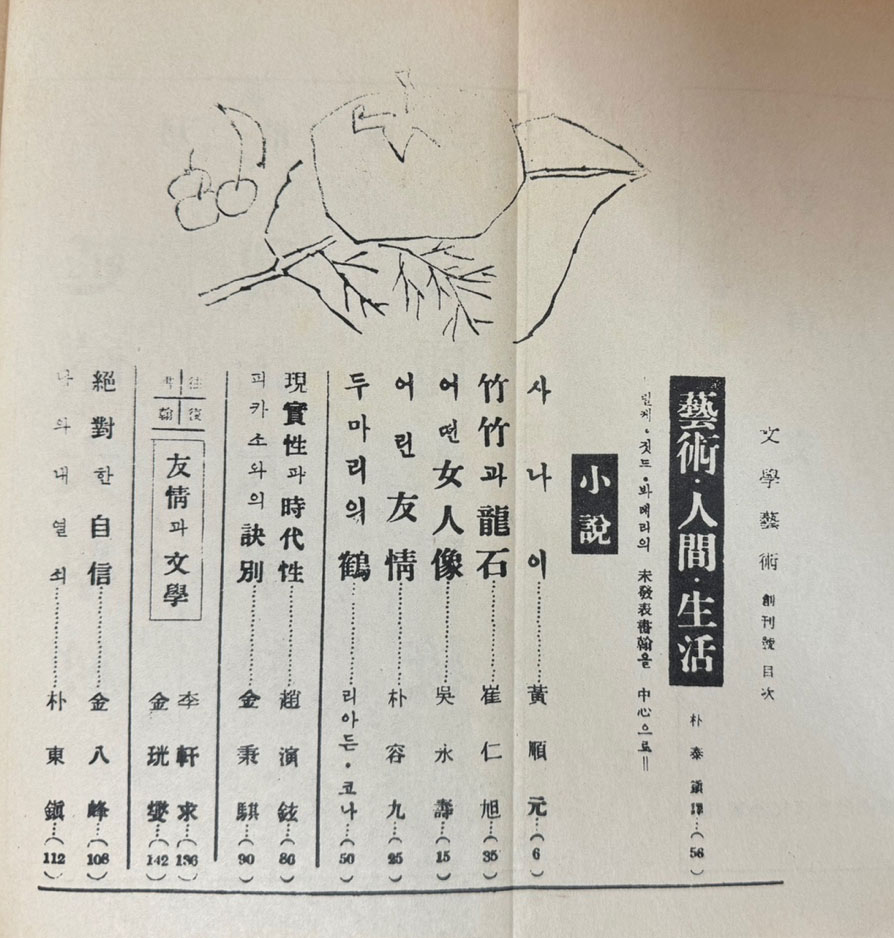 文學藝術 創刊號 目次
藝術·人間·生活 朴泰鎭譯…(56)
릴케·짓드·봐레리의 未發表書翰을 中心으로‖
小說
사나이…………黃順元…(6)
竹竹과龍石…………崔仁旭…(35)
어떤女人像…………吳永壽…(15)
어린友情…………朴容九…(25)
두마리의鶴…………리아든·코나…(50)
現實性과時代性…………趙演鉉…(86)
피카소와의訣別…………金秉騏…(90)
往復書翰
友情과文學
李軒求…(136)
金珖燮…(142)
絕對한自信…………金八峰…(108)
나의내열쇠…………朴東鎭…(112)